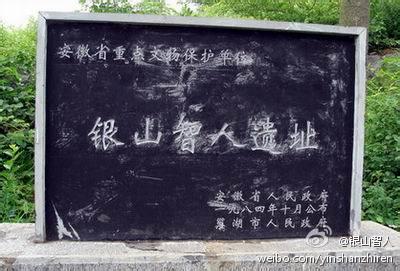 安徽省重点文物保护单位
银山智人遗址
安徽省人民政府
一九八四年十月公布
巢湖市人民政府
@银山智人
weibo.com/yinshanzhiren